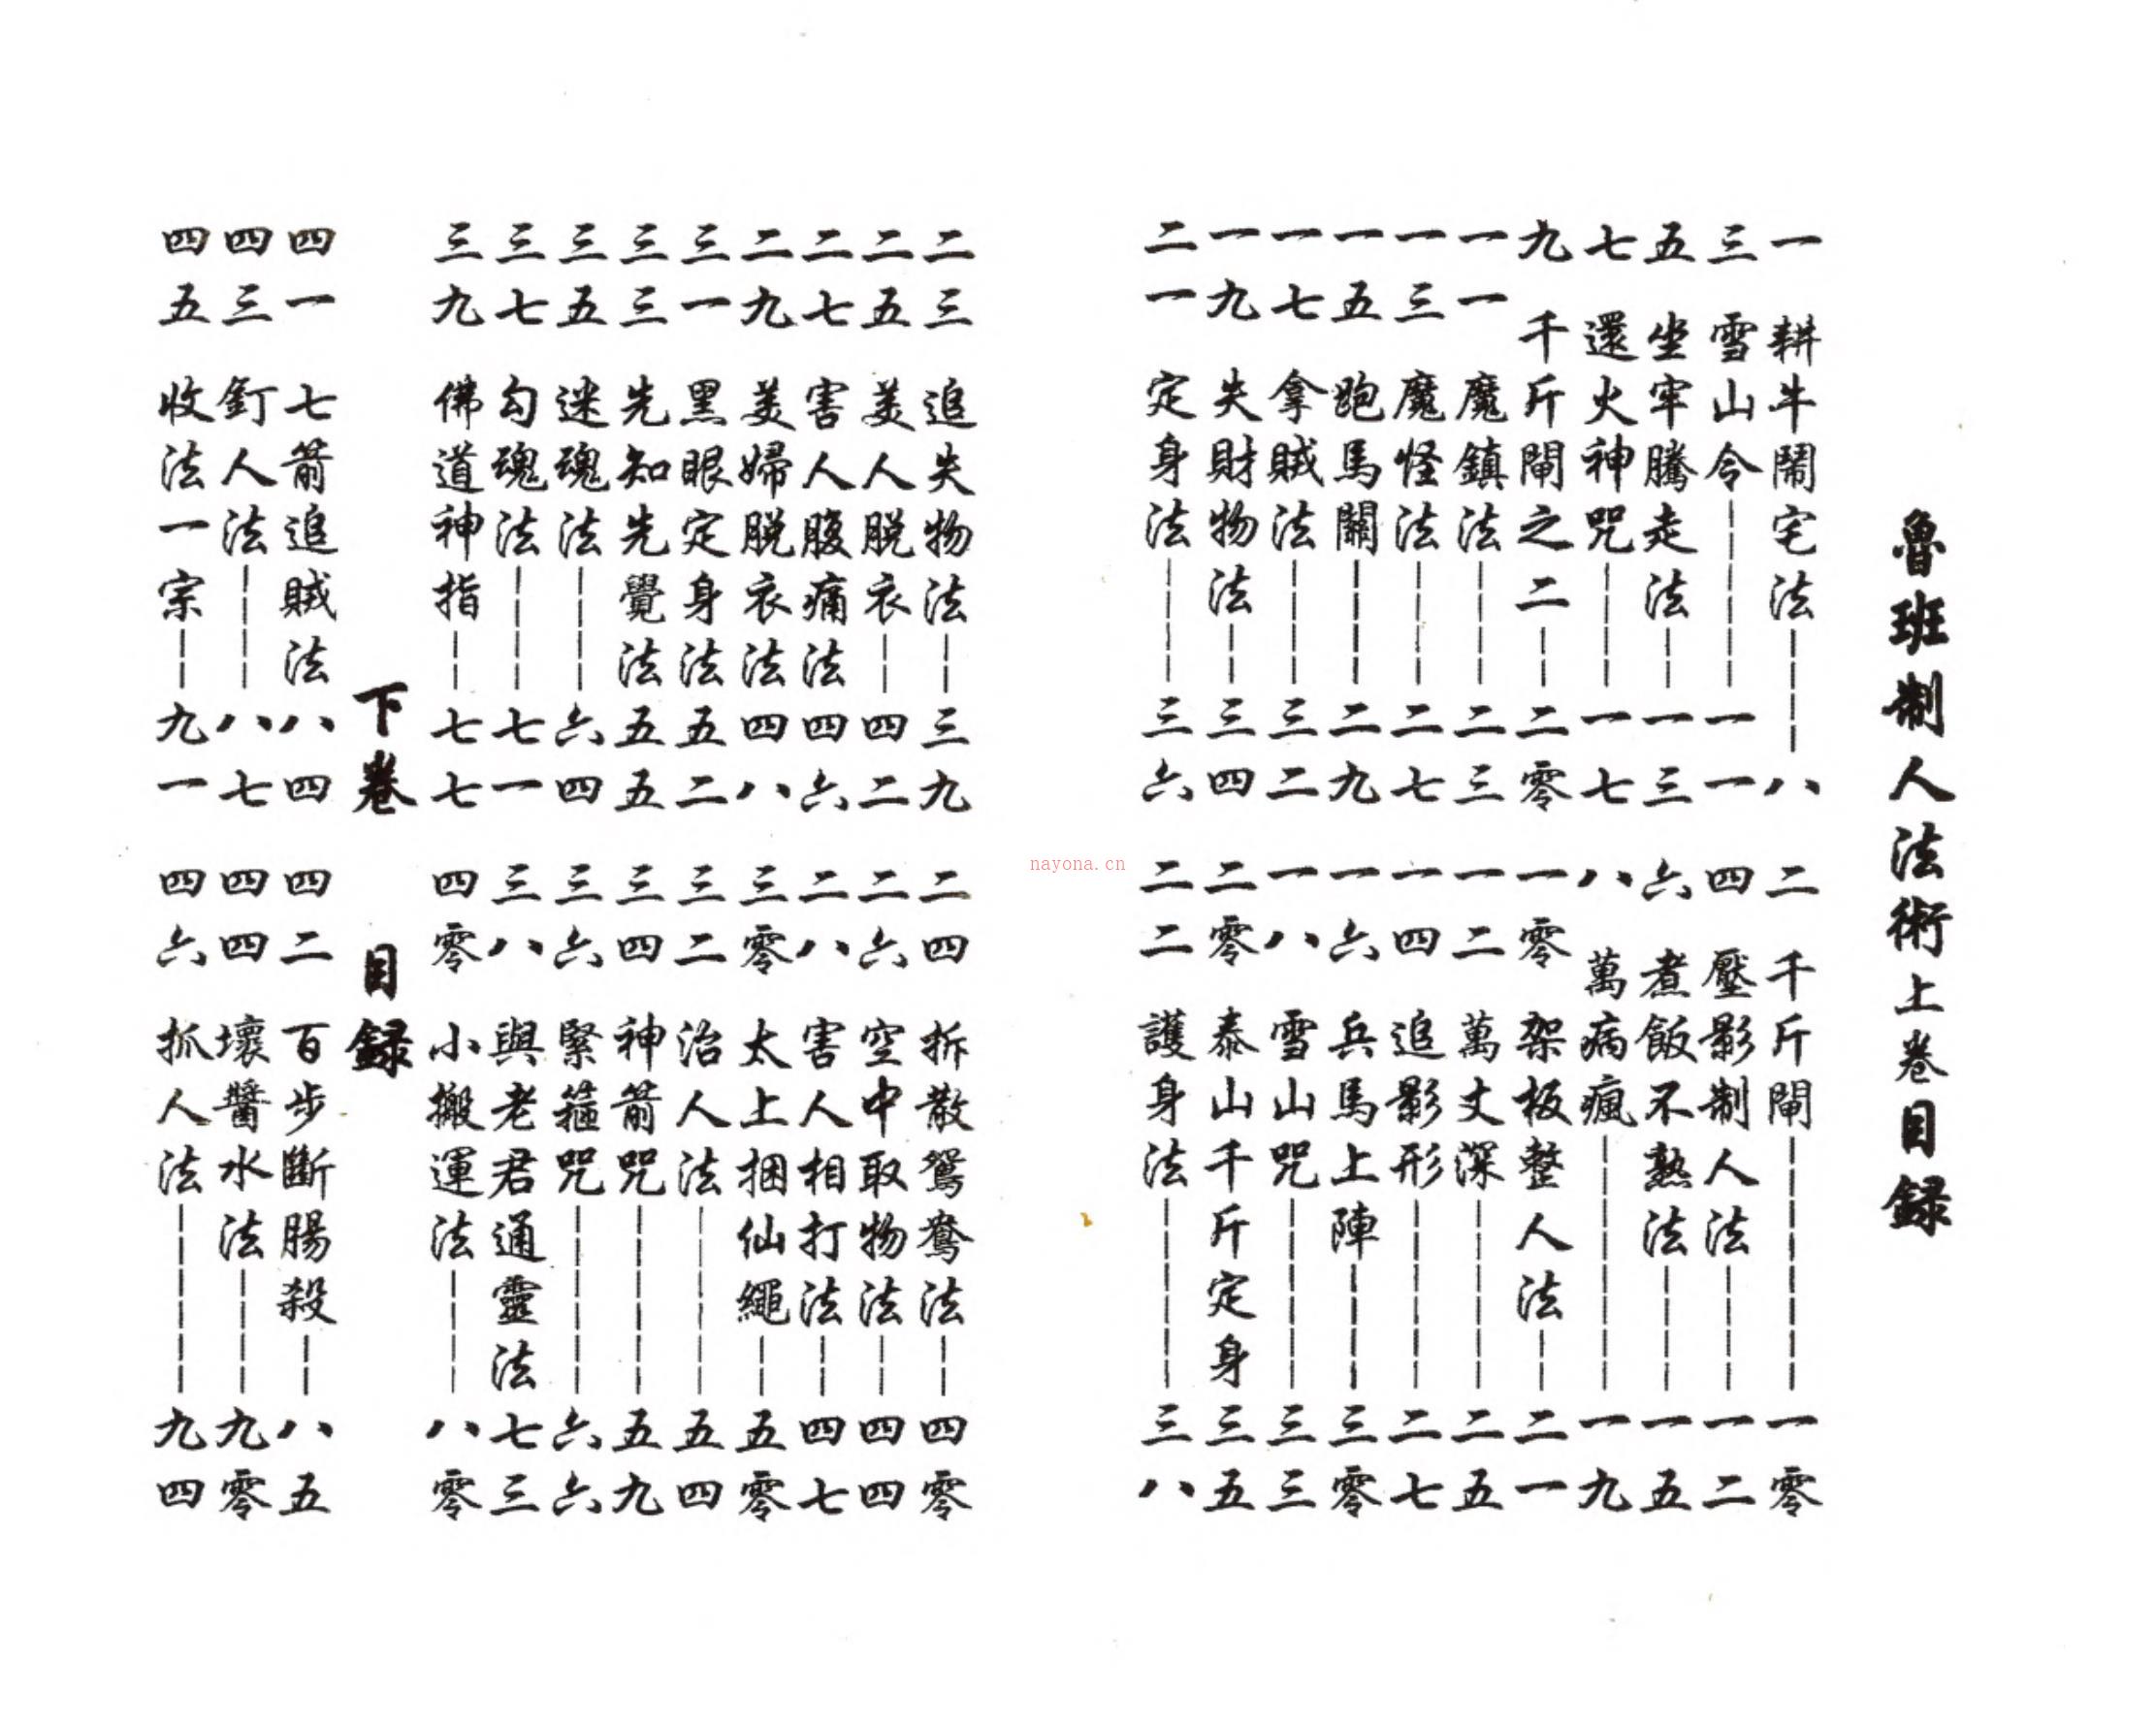 魯班制人法術上卷目録
一 耕牛鬧宅法 八
二 千斤閘 一零
三 雪山令 一一
四 壓影制人法 一二
五 坐牢騰走法 一三
六 煮飯不熟法 一五
七 還火神咒 一七
八 萬病瘋 一九
九 千斤閘之二 二零
一零 架板整人法 二一
一一 魔鎮法 二三
一二 萬丈深 二五
一三 魔怪法 二七
一四 追影形 二七
一五 跑馬關 二九
一六 兵馬上陣 三零
一七 拿賊法 三二
一八 雪山咒 三三
一九 失財物法 三四
二零 泰山千斤定身 三五
二一 定身法 三六
二二 護身法 三八
二三 追失物法 三九
二四 拆散鴛鴦法 四零
二五 美人脱衣 四二
二六 空中取物法 四四
二七 害人腹痛法 四六
二八 害人相打法 四七
二九 美婦脱衣法 四八
三零 太上捆仙繩 五零
三一 黑眼定身法 五二
三二 治人法 五四
三三 先知先覺法 五五
三四 神箭咒 五九
三五 迷魂法 六四
三六 緊箍咒 六六
三七 勾魂法 七一
三八 與老君通靈法 七三
三九 佛道神指 七七
四零 小搬運法 八零
下卷 目録
四一 七箭追賊法 八四
四二 百步斷腸殺 八五
四三 釘人法 八七
四四 壞醬水法 九零
四五 收法一宗 九一
四六 抓人法 九四
nayona.cn